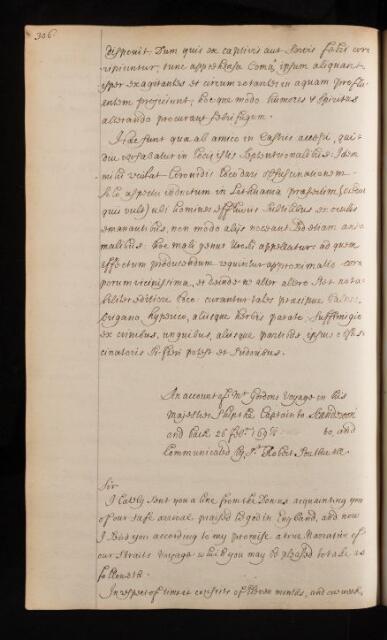 306
disponit. Dum quis ex captivis aut servis febri cor-
ripiuntur, tunc apprehensa coma, ipsum aliquant-
isper exagitantes et circumrotantes in aquam proflu-
entem projiciunt, hocque modo humores et spiritus
alterando procurant febri fugam.
Haec sunt quae ab amico in Castris accepi, qui
diu versabatur in locis istis Septentrionalibus. Idem
mihi
solo aspectu
quis vult) ubi homines effluviis subtilibus ex oculis
emanantibus, non modo aliis noceant sed etiam ani-
malibus. hoc mali genus Uroki appellatur: ad quem
effectum producendum requiritur approximatio corp-
porum vicinissima, et deinde ne alter altero sit nota-
biliter editiore loco. curantur tales praecipue
Origano, hyperico, aliisque herbis paratis, suffumigio
ex crinibus, unguibus, aliisque partibus ipsius
cinatoris si fieri potest et sudoribus.
An account of Mr Gordons Voyage in his
Majesties Ship the Captain to Scanderoon
and back 26 feb: 169 to, and
Communicated by Sr Robert Southwell.
Sir
I lately sent you a line from the Downs acquainting you
of our safe arrival praised be god in England, and now
I send you according to my promise a true Narrative of
our Straits Voyage which you may be pleased to take as
followeth.
In respect of time it consists of Eleven months, and one week,